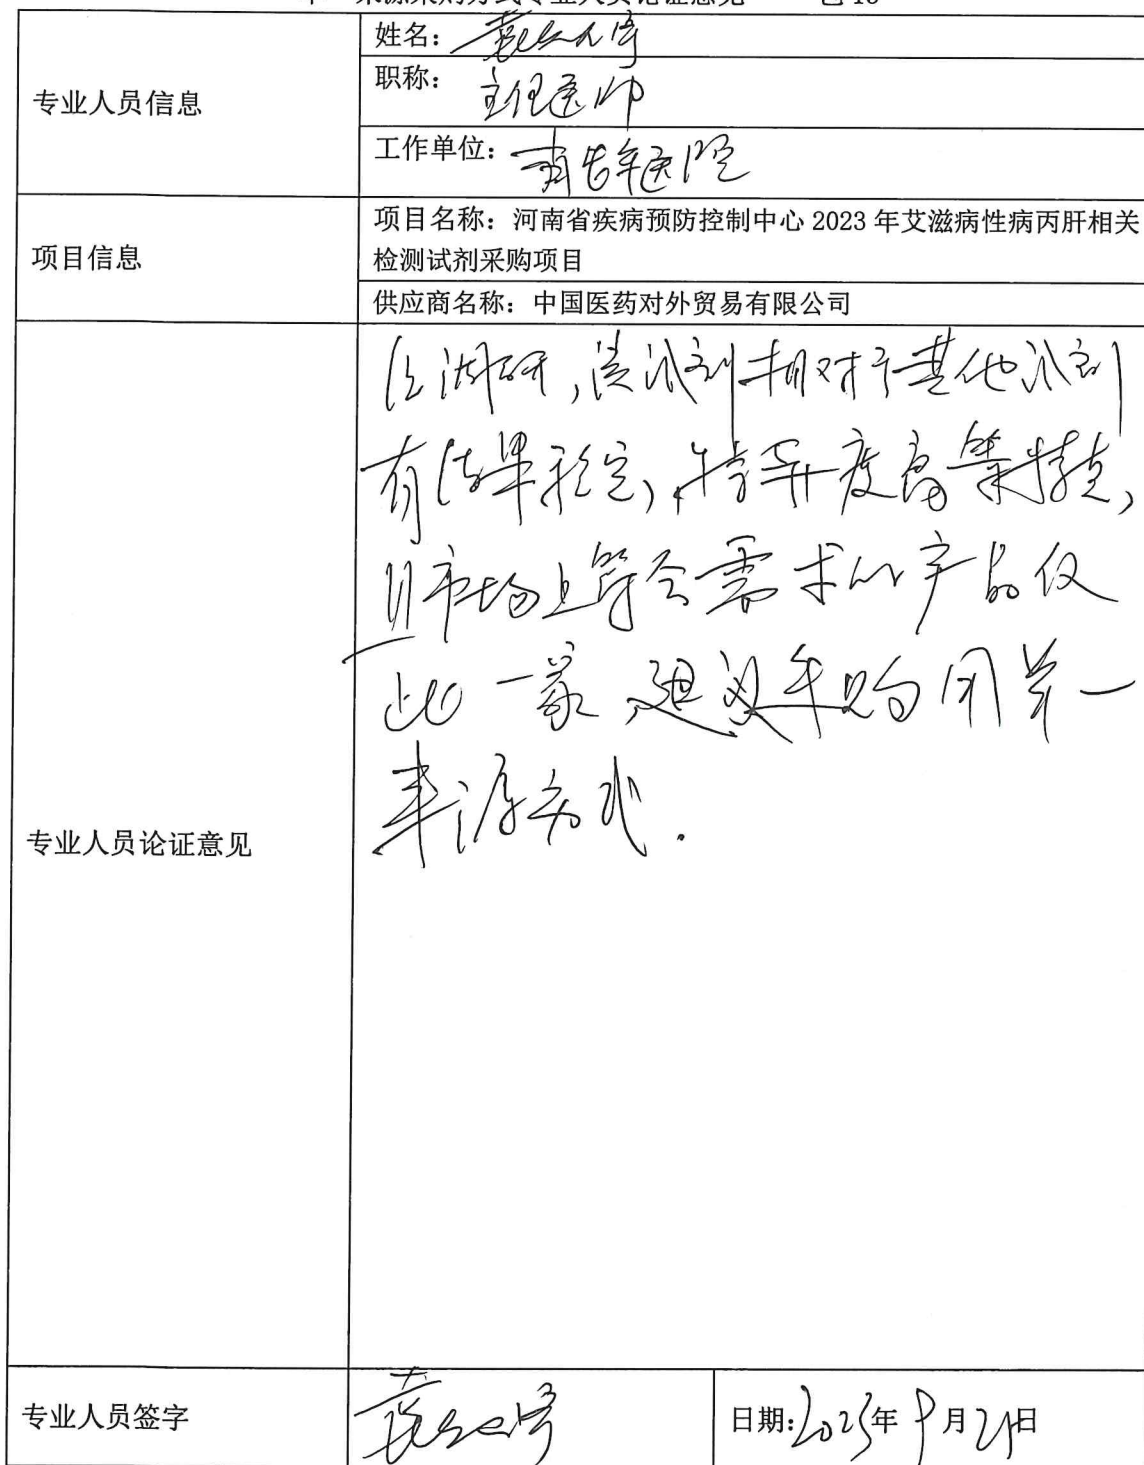 专业人员信息
姓名:
职称: 主任医师
工作单位: 医院
项目信息
项目名称: 河南省疾病预防控制中心 2023 年艾滋病性病丙肝相关
检测试剂采购项目
供应商名称: 中国医药对外贸易有限公司
专业人员论证意见
经调研,该试剂相对于其他试剂
有结果稳定,特异度高等特点,
且市场上符合需求的产品仅
此一家,建议采购用单一
来源方式.
专业人员签字
日期:2023年9月21日